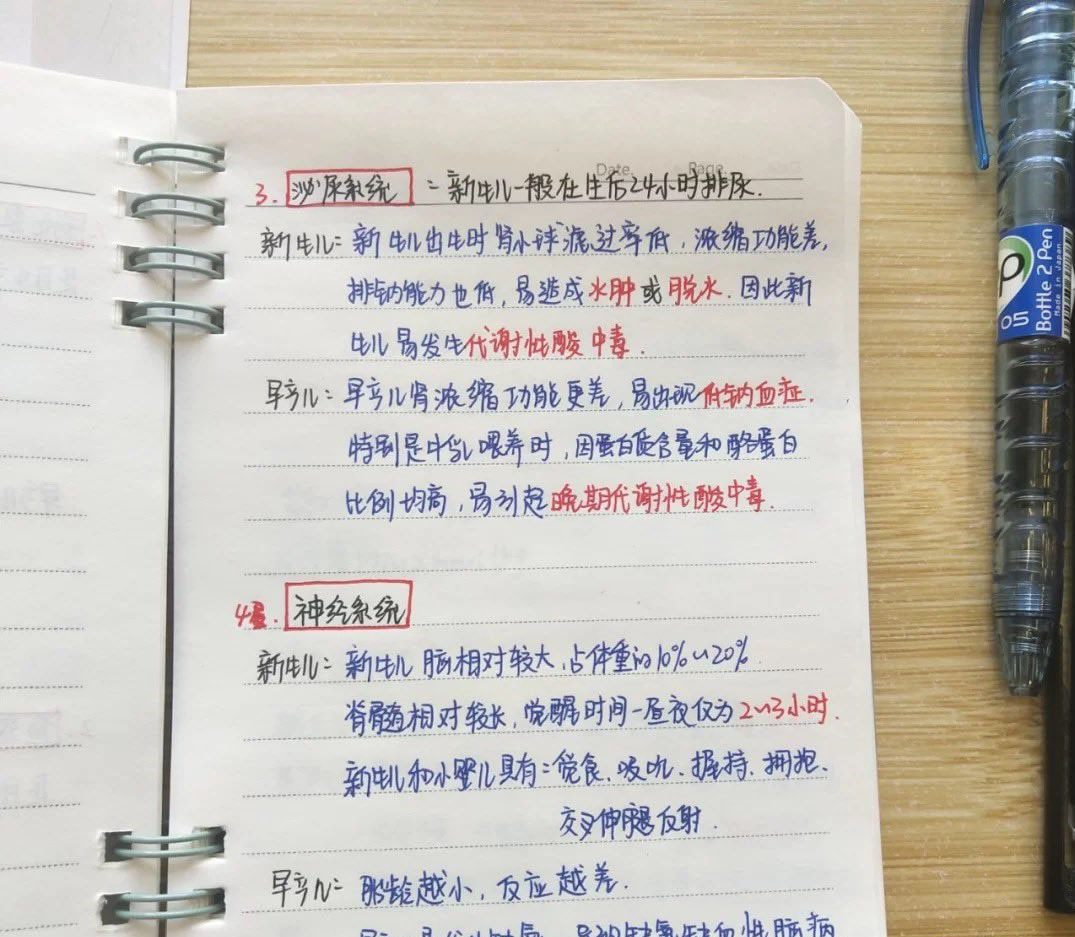 Date. Page.
3. 泌尿系统 : 新生儿一般在生后24小时排尿.
新生儿: 新生儿出生时肾小球滤过率低, 浓缩功能差,
排钠能力也低, 易造成水肿或脱水. 因此新
生儿易发生代谢性酸中毒.
早产儿: 早产儿肾浓缩功能更差, 易出现低钠血症.
特别是牛乳喂养时, 因蛋白质含量和酪蛋白
比例均高, 易引起晚期代谢性酸中毒.
4. 神经系统
新生儿: 新生儿脑相对较大, 占体重的10%~20%
脊髓相对较长, 觉醒时间一昼夜仅为2~3小时.
新生儿和小婴儿具有: 觅食、吸吮、握持、拥抱、
交叉伸腿反射.
早产儿: 胎龄越小, 反应越差.
05
Bottle 2 Pen
Made in Japan